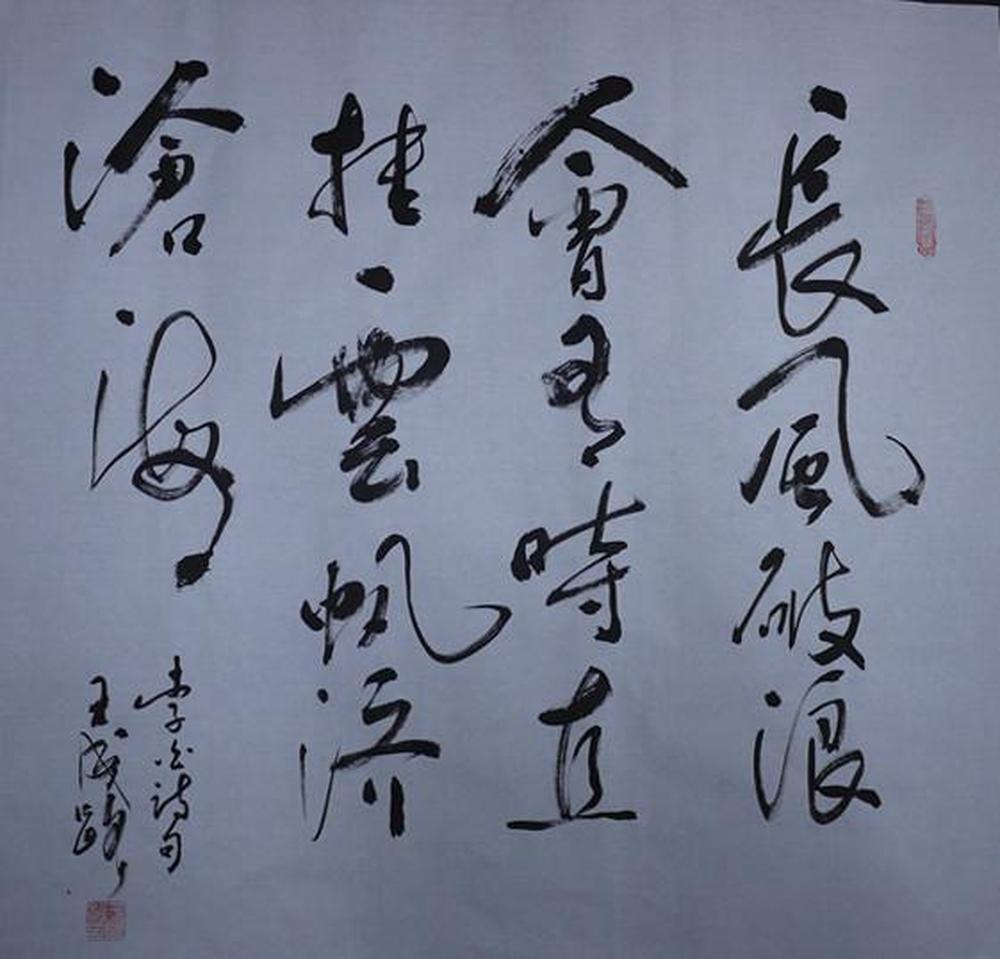 長風破浪
會有時直
挂雲帆济
滄海
李白詩句
王成